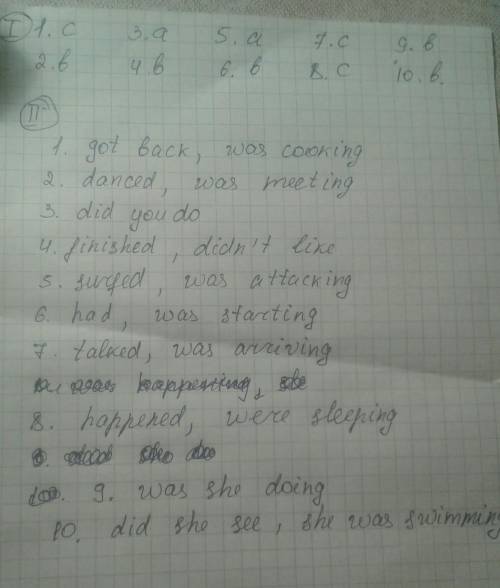 I 1. c 3. a 5. a 7. c 9. b
2. b 4. b 6. b 8. c 10. b.
II
1. got back, was cooking
2. danced, was meeting
3. did you do
4. finished, didn't like
5. surfed, was attacking
6. had, was starting
7. talked, was arriving
8. happened, were sleeping
9. was she doing
10. did she see, she was swimming